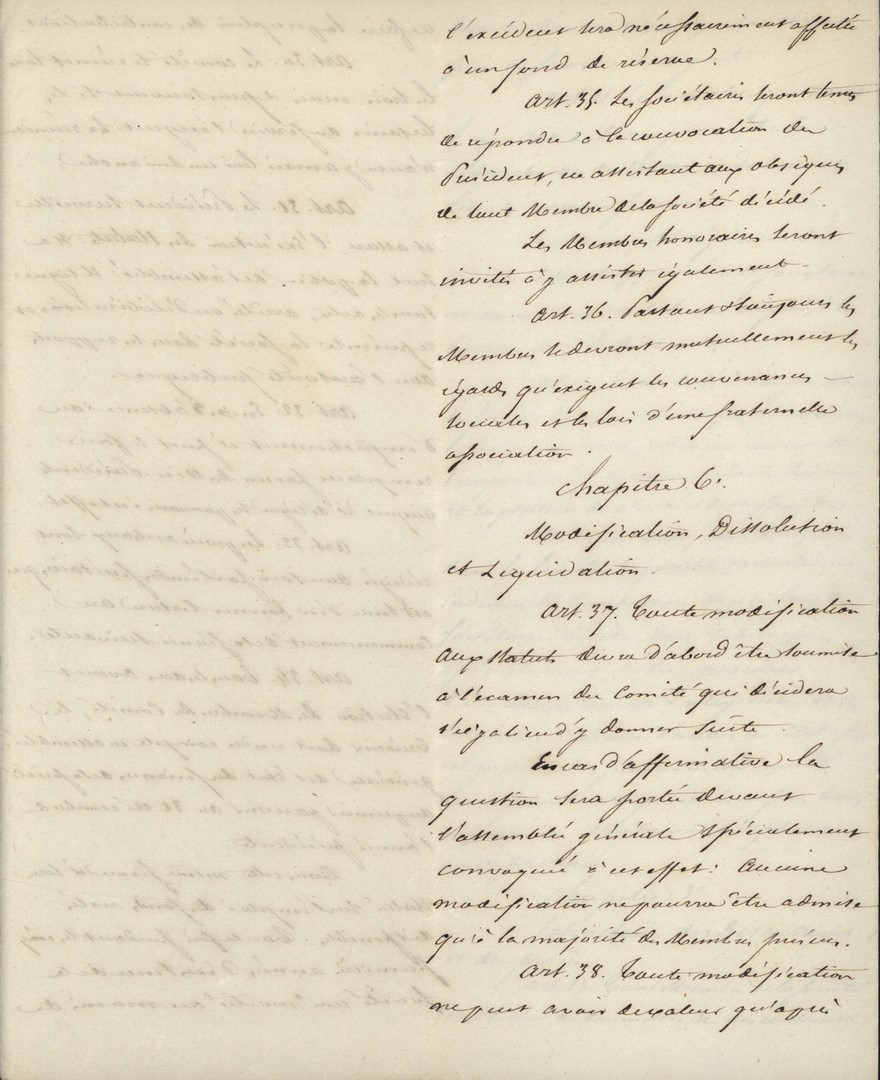 l'excédent sera nécessairement affecté
à un fond de réserve.
Art. 35. Les sociétaires seront tenus
de répondre à la convocation du
Président, en assistant aux obsèques
de tout Membre de la société décédé.
Les Membres honoraires seront
invités à y assister également.
Art. 36. Partout & toujours les
Membres se devront mutuellement les
égards qu'exigent les convenances
sociales et les lois d'une fraternelle
association.
Chapitre 6.
Modification, Dissolution
et Liquidation.
Art. 37. Toute modification
aux statuts devra d'abord être soumise
à l'examen du Comité qui décidera
s'il y a lieu d'y donner suite.
En cas d'affirmative la
question sera portée devant
l'assemblée générale spécialement
convoquée à cet effet: Aucune
modification ne pourra être admise
qu'à la majorité des Membres présens.
Art. 38. Toute modification
ne peut avoir de valeur qu'après